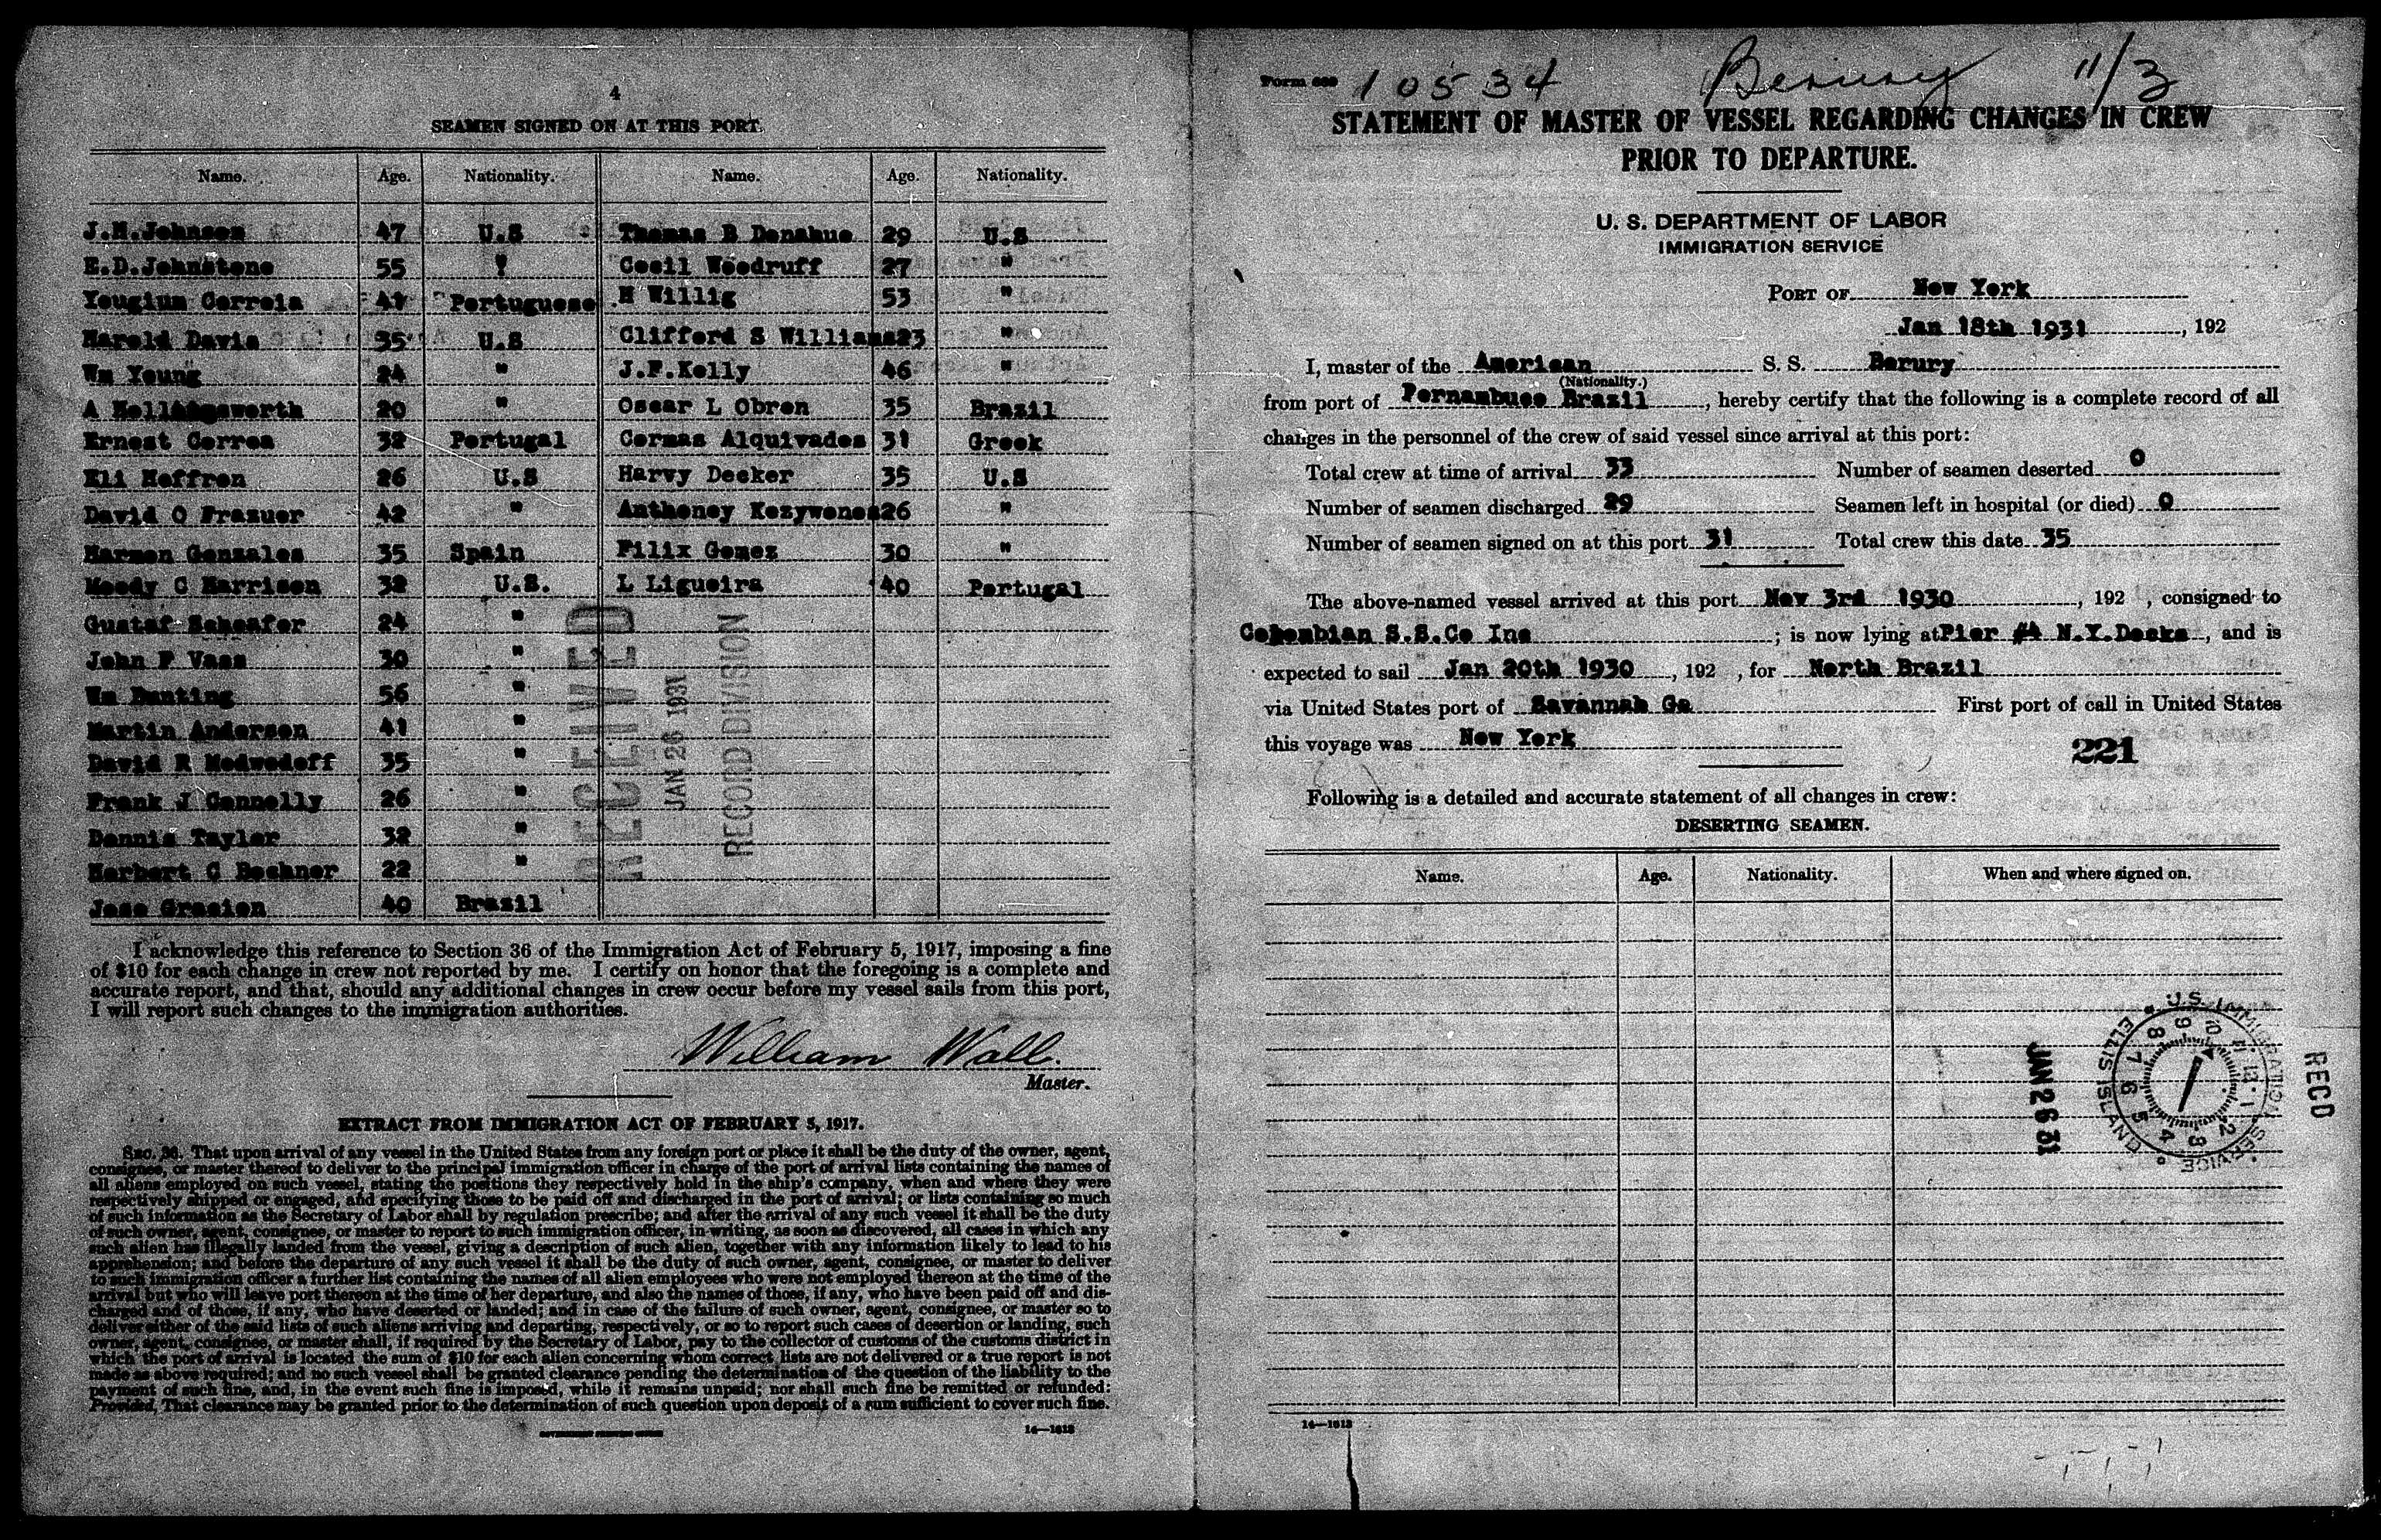 4
SEAMEN SIGNED ON AT THIS PORT.
Name. Age. Nationality. Name. Age. Nationality.
J.M.Johnson 47 U.S Thomas B Donahue 29 U.S
E.D.Johnstone 55 " Cecil Woodruff 27 "
Yougium Correia 41 Portuguese H Willig 53 "
Harold Davis 35 U.S Clifford S Williams23 "
Wm Young 24 " J.F.Kelly 46 "
A Hollingsworth 20 " Oscar L Obron 35 Brazil
Ernest Correa 32 Portugal Cormas Alquivades 31 Greek
Eli Heffron 26 U.S Harvy Decker 35 U.S
David O Frazuer 42 " Anthoney 26 "
Harmon Gonzales 35 Spain Filix Gomez 30 "
Moody C Harrison 32 U.S. L Ligueira 40 Portugal
Gustaf Scheafer 24 "
John P Vass 30 "
Wm Bunting 56 "
Martin Anderson 41 "
David R Medwedeff 35 "
Frank J Connelly 26 "
Dennis Taylor 32 "
Herbert C Bechner 22 "
Jose Gracien 40 Brazil
RECEIVED
JAN 26 1931
RECORD DIVISION
I acknowledge this reference to Section 36 of the Immigration Act of February 5, 1917, imposing a fine
of $10 for each change in crew not reported by me. I certify on honor that the foregoing is a complete and
accurate report, and that, should any additional changes in crew occur before my vessel sails from this port,
I will report such changes to the immigration authorities.
William Wall.
Master.
EXTRACT FROM IMMIGRATION ACT OF FEBRUARY 5, 1917.
SEC. 36. That upon arrival of any vessel in the United States from any foreign port or place it shall be the duty of the owner, agent,
consignee, or master thereof to deliver to the principal immigration officer in charge of the port of arrival lists containing the names of
all aliens employed on such vessel, stating the positions they respectively hold in the ship's company, when and where they were
respectively shipped or engaged, and specifying those to be paid off and discharged in the port of arrival; or lists containing so much
of such information as the Secretary of Labor shall by regulation prescribe; and after the arrival of any such vessel it shall be the duty
of such owner, agent, consignee, or master to report to such immigration officer, in writing, as soon as discovered, all cases in which any
such alien has illegally landed from the vessel, giving a description of such alien, together with any information likely to lead to his
apprehension; and before the departure of any such vessel it shall be the duty of such owner, agent, consignee, or master to deliver
to such immigration officer a further list containing the names of all alien employees who were not employed thereon at the time of the
arrival but who will leave port thereon at the time of her departure, and also the names of those, if any, who have been paid off and dis-
charged and of those, if any, who have deserted or landed; and in case of the failure of such owner, agent, consignee, or master so to
deliver either of the said lists of such aliens arriving and departing, respectively, or so to report such cases of desertion or landing, such
owner, agent, consignee, or master shall, if required by the Secretary of Labor, pay to the collector of customs of the customs district in
which the port of arrival is located the sum of $10 for each alien concerning whom correct lists are not delivered or a true report is not
made as above required; and no such vessel shall be granted clearance pending the determination of the question of the liability to the
payment of such fine, and, in the event such fine is imposed, while it remains unpaid; nor shall such fine be remitted or refunded:
Provided, That clearance may be granted prior to the determination of such question upon deposit of a sum sufficient to cover such fine.
GOVERNMENT PRINTING OFFICE
14—1613
Form 10534 Berury 11/3
STATEMENT OF MASTER OF VESSEL REGARDING CHANGES IN CREW
PRIOR TO DEPARTURE.
U. S. DEPARTMENT OF LABOR
IMMIGRATION SERVICE
PORT OF New York
Jan 18th 1931, 192
I, master of the American S. S. Berury
(Nationality.)
from port of Pernambuco Brazil, hereby certify that the following is a complete record of all
changes in the personnel of the crew of said vessel since arrival at this port:
Total crew at time of arrival 33 Number of seamen deserted 0
Number of seamen discharged 29 Seamen left in hospital (or died) 0
Number of seamen signed on at this port 31 Total crew this date 35
The above-named vessel arrived at this port Nov 3rd 1930, 192 , consigned to
Colombian S.S.Co Inc; is now lying at Pier #4 N.Y.Docks, and is
expected to sail Jan 20th 1930, 192 , for North Brazil
via United States port of Savannah Ga First port of call in United States
this voyage was New York
221
Following is a detailed and accurate statement of all changes in crew:
DESERTING SEAMEN.
Name. Age. Nationality. When and where signed on.
U.S. IMMIGRATION SERVICE
ELLIS ISLAND
1 2 3 4 5 6 7 8 9 10 11 12
JAN 26 31
RECD
14—1613